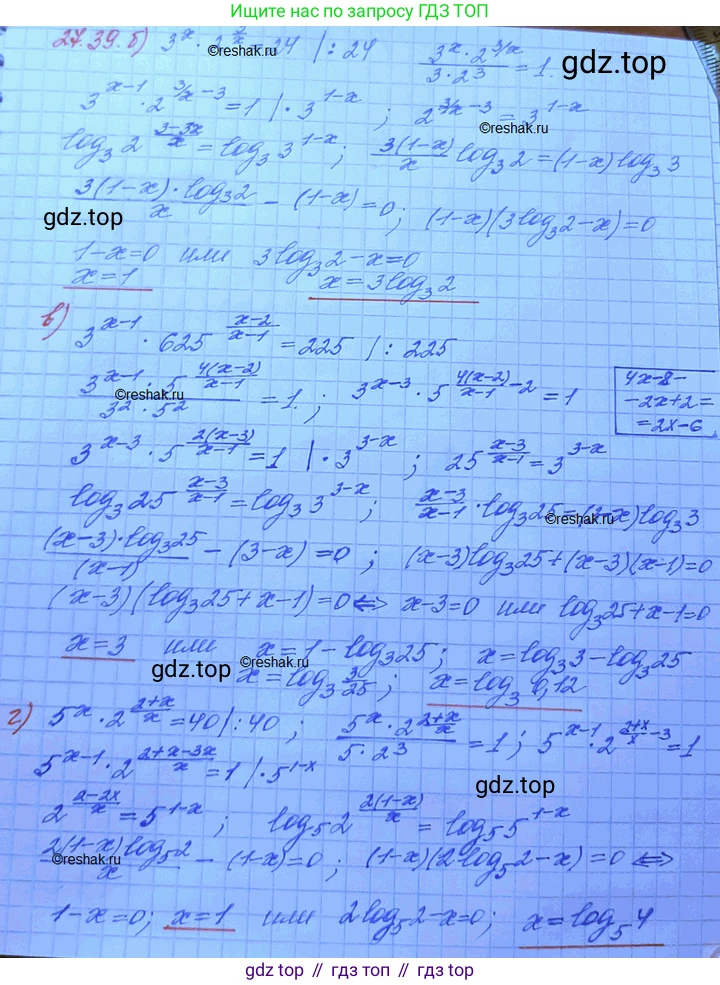 Ищите нас по запросу ГДЗ ТОП
27.39. б) 3^x · 2^{3/x} = 24 | : 24   (3^x · 2^{3/x})/(3 · 2^3) = 1.
©reshak.ru
gdz.top
3^{x-1} · 2^{3/x - 3} = 1 | · 3^{1-x} ; 2^{3/x - 3} = 3^{1-x}
©reshak.ru
log_3 2^{(3-3x)/x} = log_3 3^{1-x} ; (3(1-x))/x log_3 2 = (1-x) log_3 3
(3(1-x) · log_3 2)/x - (1-x) = 0 ; (1-x)(3log_3 2 - x) = 0
gdz.top
1-x=0 или 3log_3 2 - x = 0
x=1   x = 3log_3 2
в) 3^{x-1} · 625^{(x-2)/(x-1)} = 225 | : 225
(3^{x-1} · 5^{4(x-2)/(x-1)})/(3^2 · 5^2) = 1. ; 3^{x-3} · 5^{4(x-2)/(x-1) - 2} = 1   4x-8- -2x+2= =2x-6
©reshak.ru
3^{x-3} · 5^{2(x-3)/(x-1)} = 1 | · 3^{3-x} ; 25^{(x-3)/(x-1)} = 3^{3-x}
log_3 25^{(x-3)/(x-1)} = log_3 3^{3-x} ; (x-3)/(x-1) · log_3 25 = (3-x) log_3 3
©reshak.ru
((x-3) · log_3 25)/(x-1) - (3-x) = 0 ; (x-3)log_3 25 + (x-3)(x-1) = 0
(x-3)(log_3 25 + x-1) = 0 <=> x-3=0 или log_3 25 + x-1=0
x=3 или x = 1 - log_3 25 ; x = log_3 3 - log_3 25
gdz.top
©reshak.ru
x = log_3 3/25 ; x = log_3 0,12
г) 5^x · 2^{(2+x)/x} = 40 | : 40 ; (5^x · 2^{(2+x)/x})/(5 · 2^3) = 1 ; 5^{x-1} · 2^{(2+x)/x - 3} = 1
5^{x-1} · 2^{(2+x-3x)/x} = 1 | · 5^{1-x}
gdz.top
2^{(2-2x)/x} = 5^{1-x} ; log_5 2^{2(1-x)/x} = log_5 5^{1-x}
(2(1-x) log_5 2)/x - (1-x) = 0 ; (1-x)(2log_5 2 - x) = 0 <=>
©reshak.ru
1-x=0; x=1 или 2log_5 2 - x = 0; x = log_5 4
gdz.top // гдз топ // gdz.top